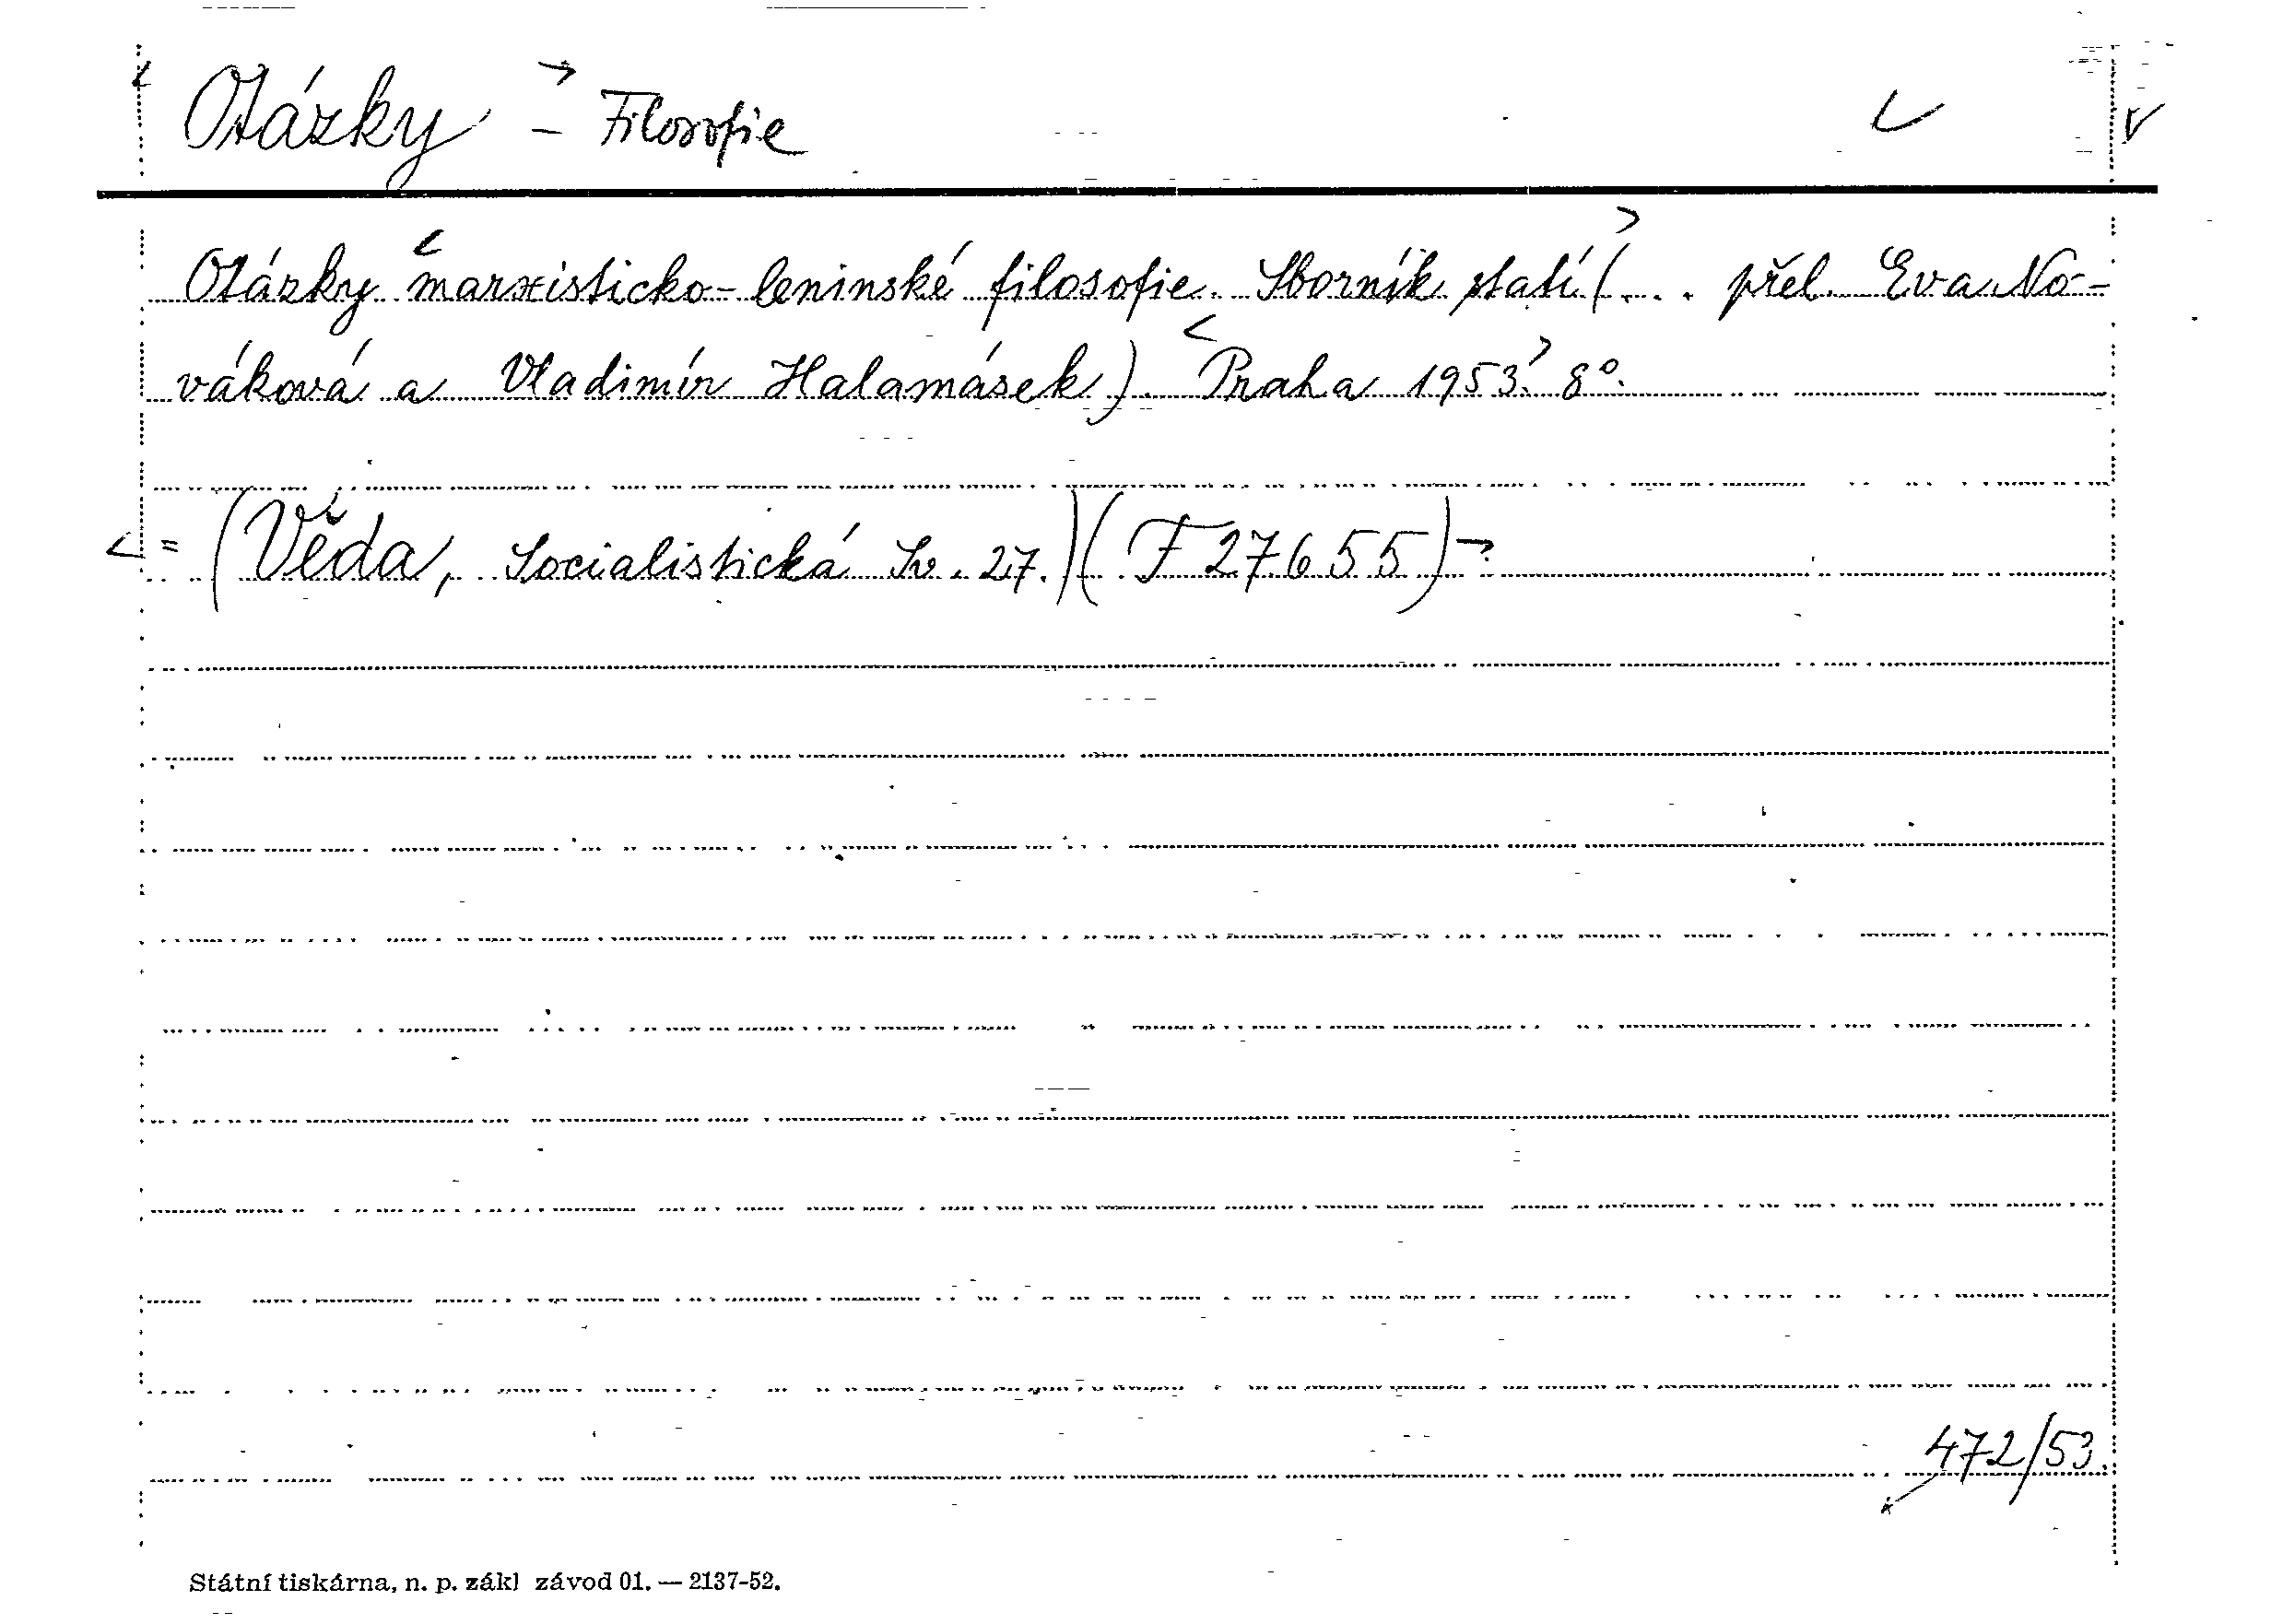 Otázky - Filosofie
Otázky marxisticko-leninské filosofie. Sborník statí (... přel. Eva No-
váková a Vladimír Halamásek). Praha 1953. 8°.
= (Věda, Socialistická Sv. 27.) (F 27655)
472/53.
Státní tiskárna, n. p. zákl závod 01. — 2137-52.